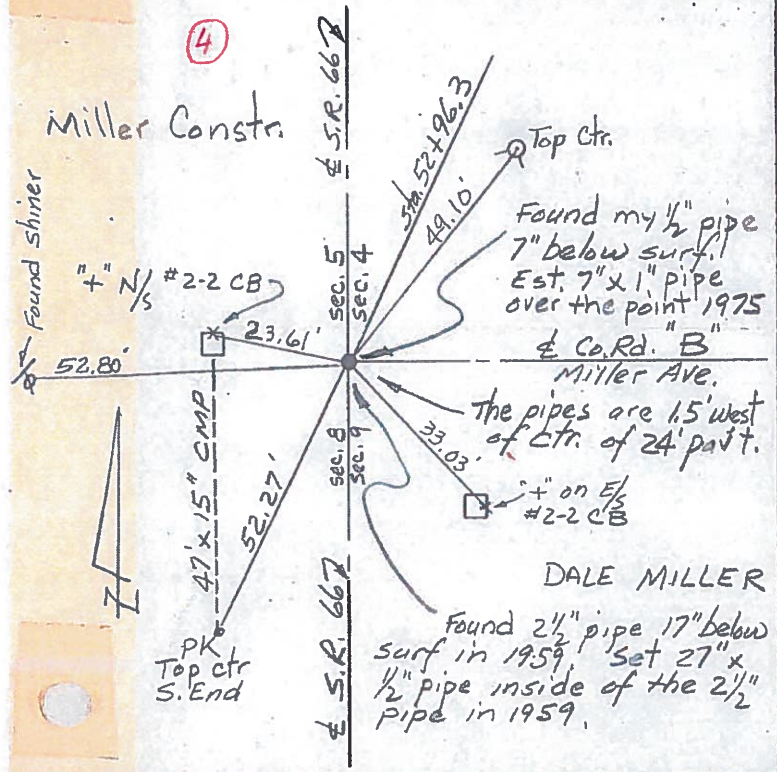 4
Miller Constr.
℄ S.R. 667
Sta. 52+96.3
49.10'
Top Ctr.
Found shiner
"+" N/s #2-2 CB
23.61'
52.80'
sec. 5
sec. 4
Found my ½" pipe
7" below surf.
Est. 7" x 1" pipe
over the point 1975
℄ Co. Rd. "B"
Miller Ave.
The pipes are 1.5' west
of ctr. of 24' pav't.
sec. 8
sec. 9
33.03'
"+" on E/s
#2-2 CB
47' x 15" CMP
52.27'
PK
Top ctr
S. End
℄ S.R. 667
DALE MILLER
Found 2½" pipe 17" below
surf in 1959. Set 27" x
½" pipe inside of the 2½"
pipe in 1959.